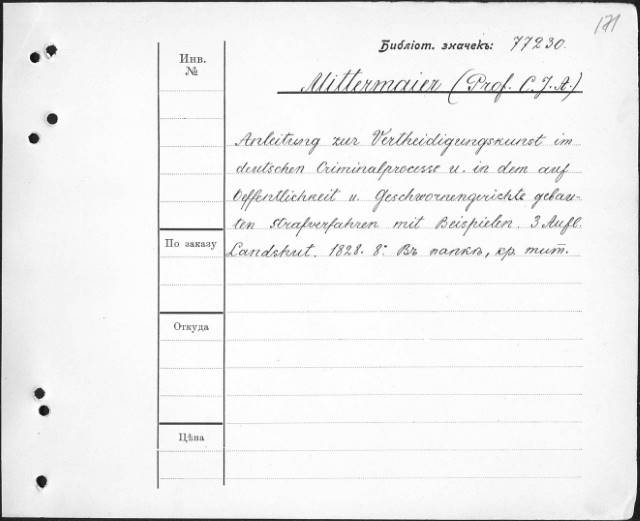 171
Библіот. значекъ: 77230.
Инв.
№
Mittermaier (Prof. C. J. A.)
Anleitung zur Vertheidigungskunst im
deutschen Criminalprocesse u. in dem auf
Oeffentlichkeit u. Geschwornengerichte gebau-
ten Strafverfahren mit Beispielen. 3 Aufl.
По заказу
Landshut. 1828. 8°. Въ папкѣ, кр. тит.
Откуда
Цѣна